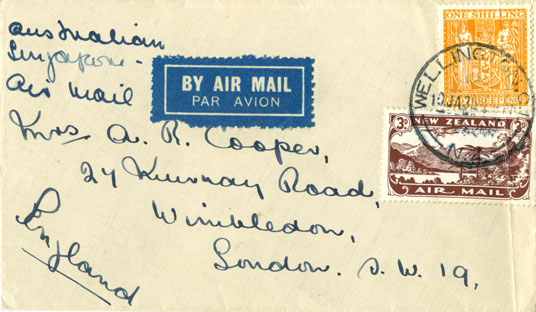 Australian
Singapore
Air mail
BY AIR MAIL
PAR AVION
ONE SHILLING
WELLINGTON
N.Z
3D
NEW ZEALAND
AIR MAIL
Mrs A. R. Cooper,
27 Road,
Wimbledon,
London. S. W. 19,
England